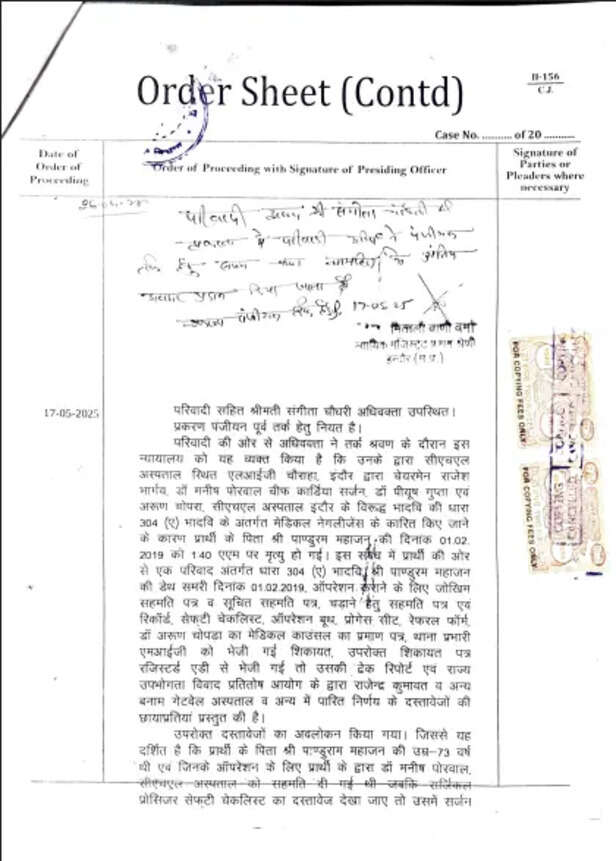 Order Sheet (Contd)
II-156
C.J.
Case No. .......... of 20 ..........
Date of
Order of
Proceeding
Order of Proceeding with Signature of Presiding Officer
Signature of
Parties or
Pleaders where
necessary
परिवादी
श्री संगीता
17-05-25
वर्मा
न्यायिक मजिस्ट्रेट प्रथम श्रेणी
इन्दौर (म.प्र.)
FOR COPYING FEES ONLY
FOR COPYING FEES ONLY
17-05-2025
परिवादी सहित श्रीमती संगीता चौधरी अधिवक्ता उपस्थित।
प्रकरण पंजीयन पूर्व तर्क हेतु नियत है।
परिवादी की ओर से अधिवक्ता ने तर्क श्रवण के दौरान इस
न्यायालय को यह व्यक्त किया है कि उनके द्वारा सीएचएल
अस्पताल स्थित एलआईजी चौराहा, इंदौर द्वारा चेयरमेन राजेश
भार्गव, डॉ मनीष पोरवाल चीफ कार्डिया सर्जन, डॉ पीयूष गुप्ता एवं
अरूण चोपरा, सीएचएल अस्पताल इंदौर के विरूद्ध भादवि की धारा
304 (ए) भादवि के अंतर्गत मेडिकल नेगलीजेंस के कारित किए जाने
के कारण प्रार्थी के पिता श्री पाण्डुरम महाजन की दिनांक 01.02.
2019 को 1.40 एएम पर मृत्यु हो गई। इस संबंध में प्रार्थी की ओर
से एक परिवाद अंतर्गत धारा 304 (ए) भादवि, श्री पाण्डुरम महाजन
की डेथ समरी दिनांक 01.02.2019, ऑपरेशन कराने के लिए जोखिम
सहमति पत्र व सूचित सहमति पत्र, चड़ाने हेतु सहमति पत्र एवं
रिकॉर्ड, सेफ्टी चेकलिस्ट, ऑपरेशन बूथ, प्रोगेस सीट, रेफरल फॉर्म,
डॉ अरूण चोपडा का मेडिकल काउंसल का प्रमाण पत्र, थाना प्रभारी
एमआईजी को भेजी गई शिकायत, उपरोक्त शिकायत पत्र
रजिस्टर्ड एडी से भेजी गई तो उसकी ट्रेक रिपोर्ट एवं राज्य
उपभोगता विवाद प्रतितोष आयोग के द्वारा राजेन्द्र कुमावत व अन्य
बनाम गेटवेल अस्पताल व अन्य में पारित निर्णय के दस्तावेजों की
छायाप्रतियां प्रस्तुत की है।
उपरोक्त दस्तावेजों का अवलोकन किया गया। जिससे यह
दर्शित है कि प्रार्थी के पिता श्री पाण्डुराम महाजन की उम्र-73 वर्ष
थी एवं जिनके ऑपरेशन के लिए प्रार्थी के द्वारा डॉ मनीष पोरवाल,
सीएचएल अस्पताल को सहमति दी गई थी जबकि सर्जिकल
प्रोसिजर सेफ्टी चेकलिस्ट का दस्तावेज देखा जाए तो उसमें सर्जन